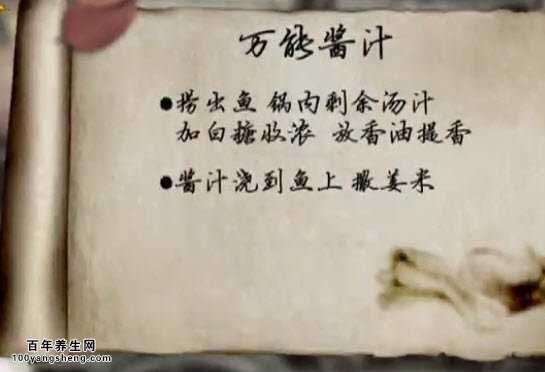 万能酱汁
●捞出鱼 锅内剩余汤汁
加白糖收浓 放香油提香
●酱汁浇到鱼上 撒姜米
百年养生网
100yangsheng.com